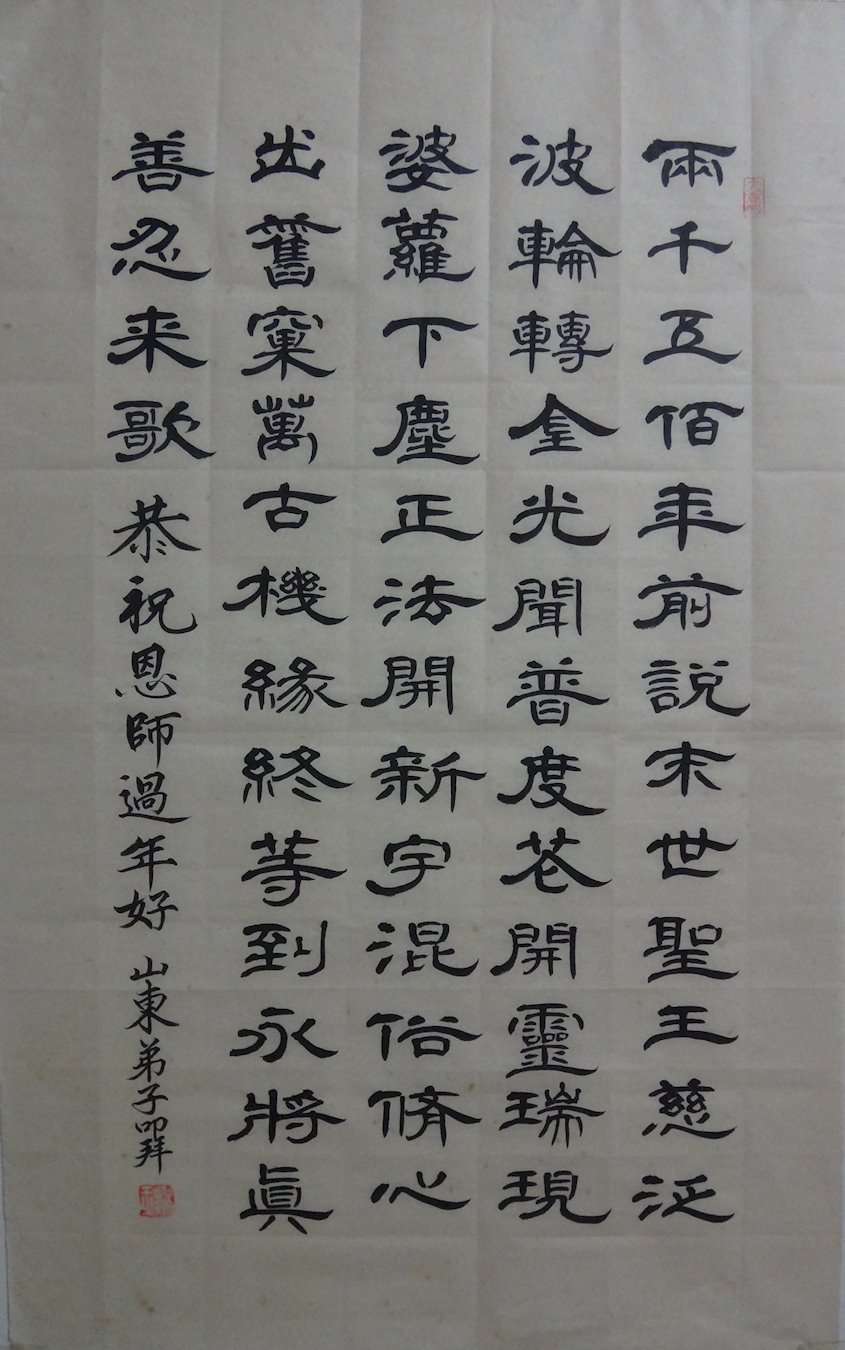 兩千五佰年前說末世聖王慈泛
波輪轉金光聞普度花開靈瑞現
婆蘿下塵正法開新宇混俗脩心
出舊窠萬古機緣終等到永將眞
善忍来歌 恭祝恩師過年好 山東弟子叩拜